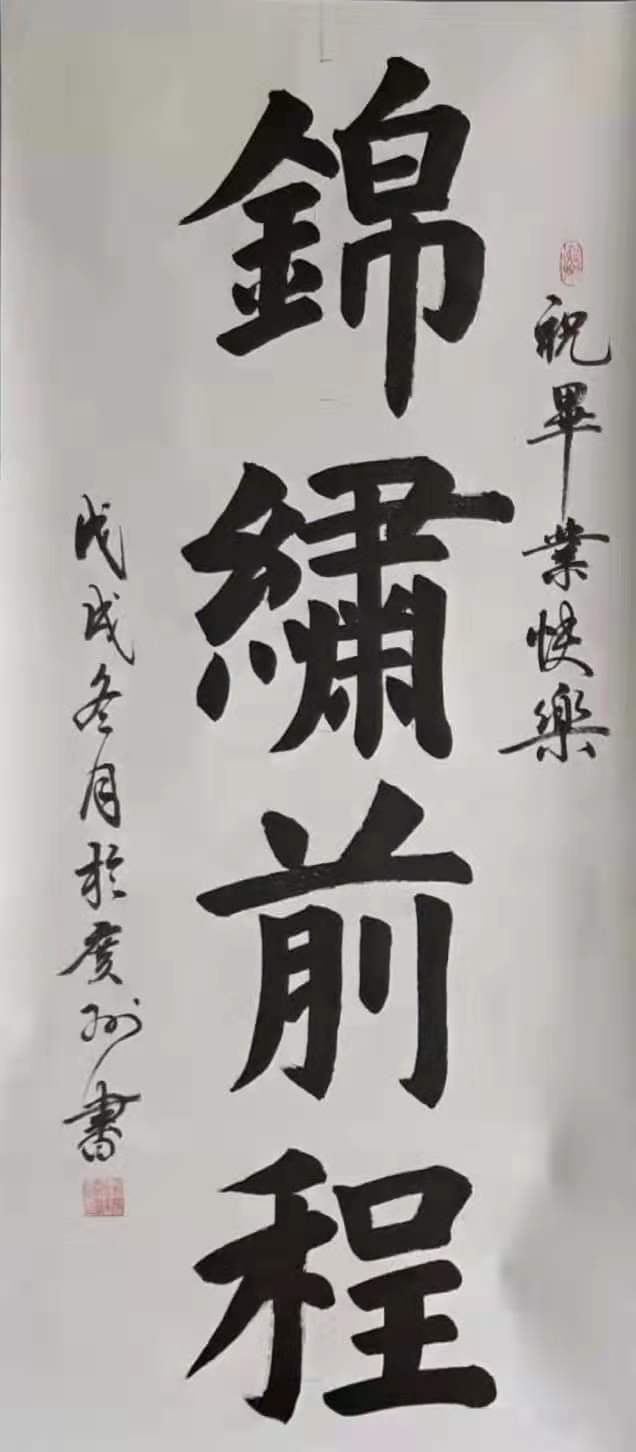 祝畢業快樂
錦繡前程
戊戌冬月於廣州書